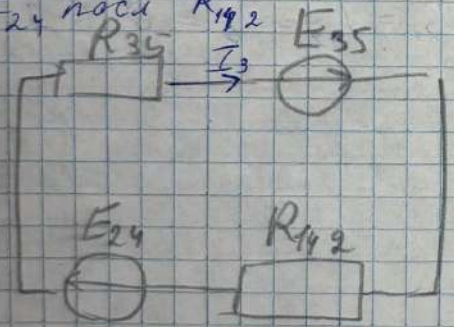 E24 посл R142
R35
I3
E35
E24
R142